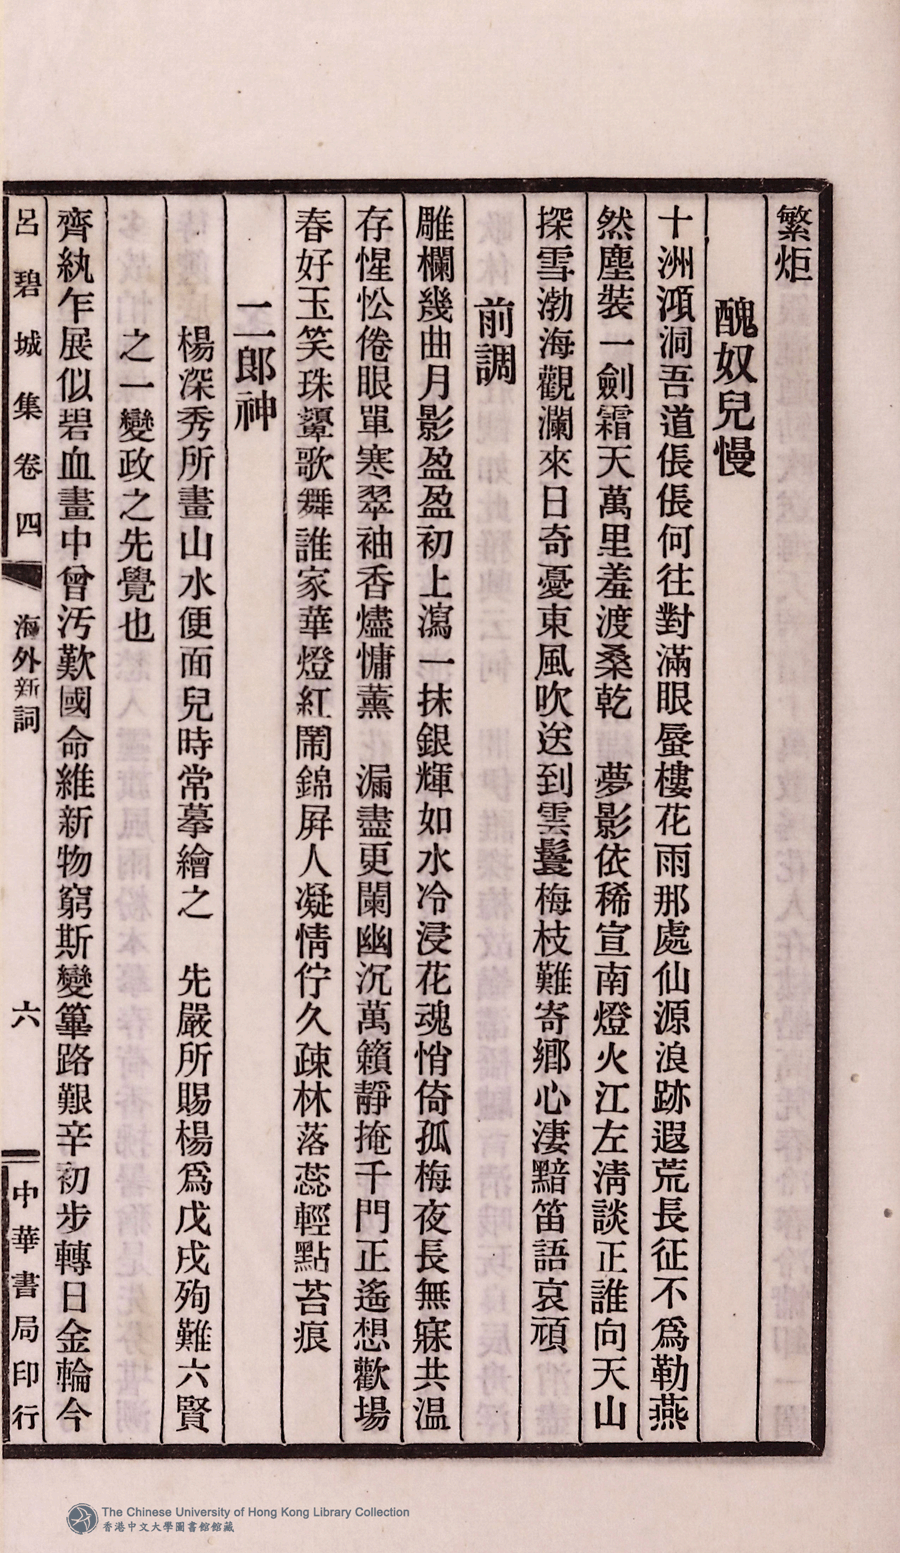 繁炬
醜奴兒慢
十洲澒洞吾道倀倀何往對滿眼蜃樓花雨那處仙源浪跡遐荒長征不爲勒燕
然塵裝一劍霜天萬里羞渡桑乾　夢影依稀宣南燈火江左淸談正誰向天山
探雪渤海觀瀾來日奇憂東風吹送到雲鬟梅枝難寄鄉心淒黯笛語哀頑
前調
雕欄幾曲月影盈盈初上瀉一抹銀輝如水冷浸花魂悄倚孤梅夜長無寐共温
存惺忪倦眼單寒翠袖香燼慵薰　漏盡更闌幽沉萬籟靜掩千門正遙想歡場
春好玉笑珠顰歌舞誰家華燈紅鬧錦屛人凝情佇久疎林落蕊輕點苔痕
二郎神
楊深秀所畫山水便面兒時常摹繪之　先嚴所賜楊爲戊戌殉難六賢
之一變政之先覺也
齊紈乍展似碧血畫中曾汚歎國命維新物窮斯變篳路艱辛初步轉日金輪今
呂碧城集卷四　海外新詞　六　中華書局印行
The Chinese University of Hong Kong Library Collection
香港中文大學圖書館館藏